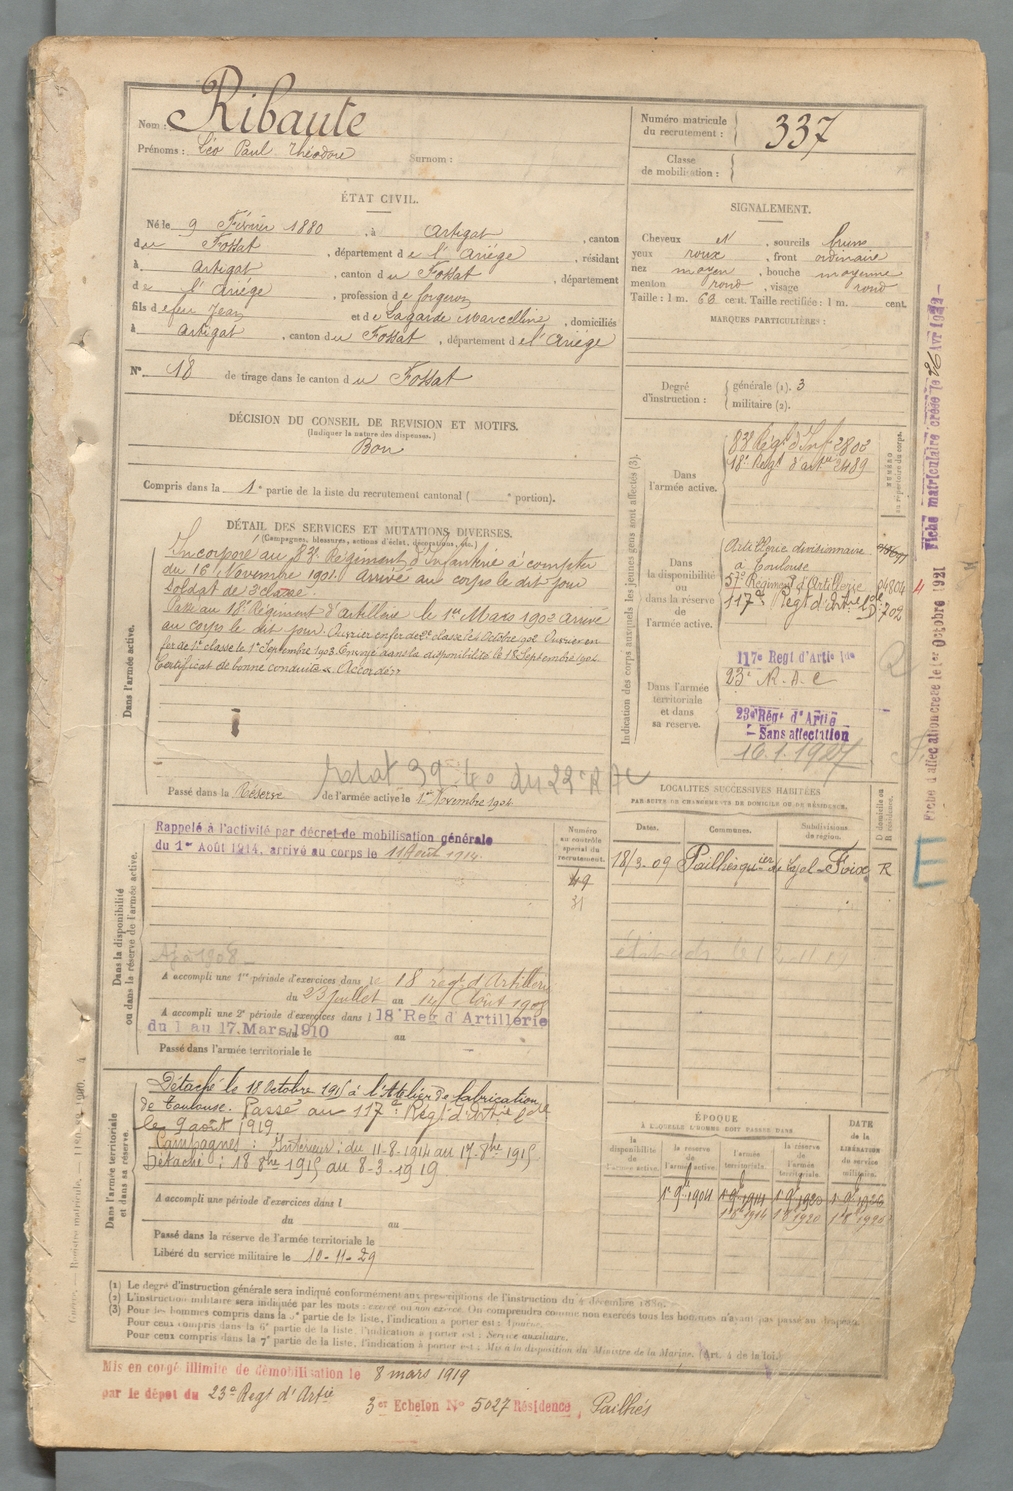 Nom : Ribaute
Prénoms : Léo Paul Théodore Surnom :
Numéro matricule du recrutement : 337
Classe de mobilisation :
ÉTAT CIVIL.
Né le 9 Février 1880, à Artigat, canton
du Fossat, département de l'Ariège, résidant
à Artigat, canton du Fossat, département
de l'Ariège, profession de forgeron
fils de feu Jean et de Lagarde Marcelline, domiciliés
à Artigat, canton du Fossat, département de l'Ariège
N° 18 de tirage dans le canton du Fossat
SIGNALEMENT.
Cheveux et, sourcils bruns
yeux roux, front ordinaire
nez moyen, bouche moyenne
menton rond, visage rond
Taille : 1 m. 66 cent. Taille rectifiée : 1 m. cent.
MARQUES PARTICULIÈRES :
Degré d'instruction : générale (1). 3
militaire (2).
DÉCISION DU CONSEIL DE REVISION ET MOTIFS.
(Indiquer la nature des dispenses.)
Bon
Compris dans la 1e partie de la liste du recrutement cantonal ( e portion).
DÉTAIL DES SERVICES ET MUTATIONS DIVERSES.
(Campagnes, blessures, actions d'éclat, décorations, etc.)
Dans l'armée active.
Incorporé au 83e Régiment d'Infanterie à compter
du 16 Novembre 1901. Arrivé au corps le dit jour
Soldat de 2e classe.
Passé au 18e Régiment d'Artillerie le 1er Mars 1902 arrivé
au corps le dit jour. Ouvrier en fer de 2e classe le 1 Octobre 1902. Ouvrier en
fer de 1e classe le 1er Septembre 1903. Envoyé dans la disponibilité le 18 Septembre 1904.
Certificat de bonne conduite « Accordé »
Passé dans la Réserve de l'armée active le 1er Novembre 1904
Indication des corps auxquels les jeunes gens sont affectés (3).
NUMÉRO au répertoire du corps.
Dans l'armée active.
83e Régt d'Inf. 2802
18e Régt d'artie 2489
Dans la disponibilité ou dans la réserve de l'armée active.
Artillerie divisionnaire
à Toulouse
57e Régiment d'Artillerie 04804
117e Regt d'Artie Lde 702
Dans l'armée territoriale et dans sa réserve.
117e Regt d'Artie lde
23e R.A.C
23e Régt d'Artie
Sans affectation
16.1.1927
Fiche d'affectation créée le 1er Octobre 1921
Fiche matriculaire créée le 26 Avr
E
Dans la disponibilité ou dans la réserve de l'armée active.
Rappelé à l'activité par décret de mobilisation générale
du 1er Août 1914, arrivé au corps le 11 Août 1914.
Numéro au contrôle spécial du recrutement.
49
31
A accompli une 1re période d'exercices dans le 18 régt d'Artillerie
du 23 juillet au 14 Août 1908
A accompli une 2e période d'exercices dans l 18e Reg d'Artillerie
du 1 au 17 Mars 1910
Passé dans l'armée territoriale le
LOCALITÉS SUCCESSIVES HABITÉES
PAR SUITE DE CHANGEMENTS DE DOMICILE OU DE RÉSIDENCE.
Dates. Communes. Subdivisions de région. D domicile ou R résidence.
18/3-09 Pailhès Foix R
Dans l'armée territoriale et dans sa réserve.
Détaché le 18 Octobre 1915 à l'Atelier de fabrication
de Toulouse. Passé au 117e Régt d'Artie Lde
le 9 août 1919
Campagnes : Intérieur : du 11-8-1914 au 17-8bre 1915
Détaché : 18 8bre 1915 au 8-3-1919
A accompli une période d'exercices dans l
du au
Passé dans la réserve de l'armée territoriale le
Libéré du service militaire le 10-11-29
ÉPOQUE
À LAQUELLE L'HOMME DOIT PASSER DANS
la disponibilité de l'armée active. la réserve de l'armée active. l'armée territoriale. la réserve de l'armée territoriale. DATE de la LIBÉRATION du service militaire.
1er 9b 1904 1er 9b 1914 1er 9b 1920 1er 9b 1926
(1) Le degré d'instruction générale sera indiqué conformément aux prescriptions de l'instruction du 4 décembre 1889.
(2) L'instruction militaire sera indiquée par les mots : exercé ou non exercé. On comprendra comme non exercés tous les hommes n'ayant pas passé au drapeau.
Pour ceux compris dans la 6e partie de la liste, l'indication à porter est : Service auxiliaire.
Pour ceux compris dans la 7e partie de la liste, l'indication à porter est : Mis à la disposition du Ministre de la Marine. (Art. 4 de la loi.)
Mis en congé illimité de démobilisation le 8 mars 1919
par le dépôt du 23e Regt d'Artie
3er Echelon No 5027 Résidence, Pailhès